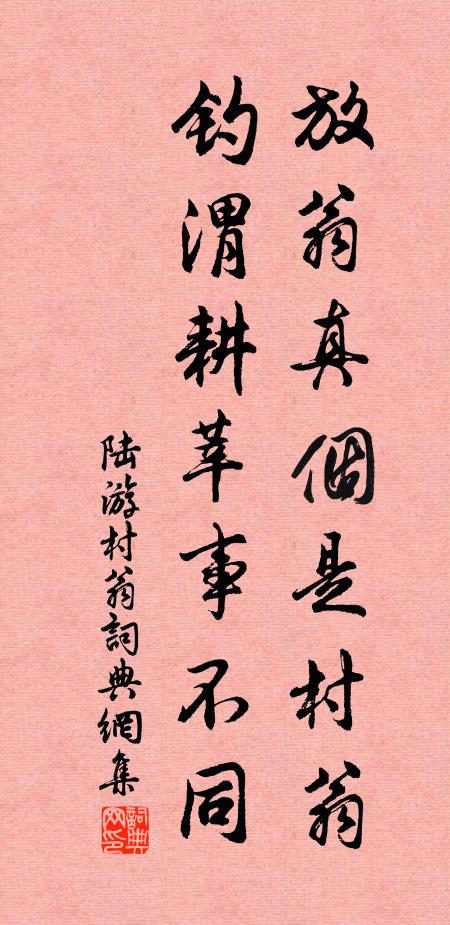 放翁真個是村翁
钓渭耕莘事不同
陆游村翁詞典網集
詞典网印